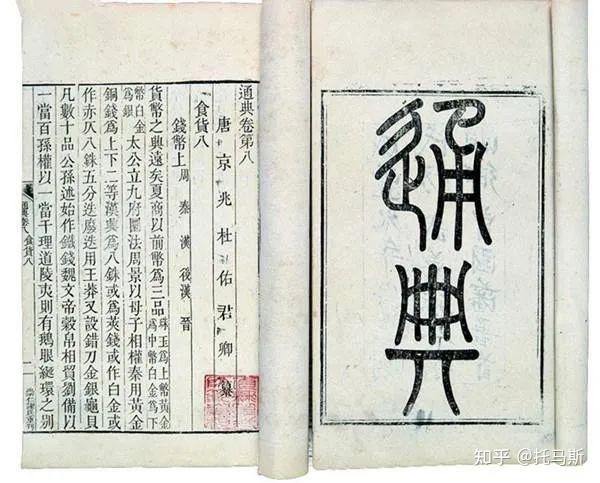 通典
通典卷第八
唐京兆杜佑君卿纂
食貨八
錢幣上 周 秦 漢 後漢 晉
貨幣之興遠矣夏商以前幣爲三品珠玉爲上幣黃金爲中幣白金爲下
幣白金爲銀太公立九府圜法周景以母子相權秦用黃金
銅錢爲上下二等漢興爲八銖或爲莢錢或作白金或
作赤仄八銖五分迭廢迭用王莽又設錯刀金銀龜貝
凡數十品公孫述始作鐵錢魏文帝穀帛相貿劉備以
一當百孫權以一當千理道陵夷則有鵝眼綖環之別
通典卷八 食貨八
知乎 @托马斯